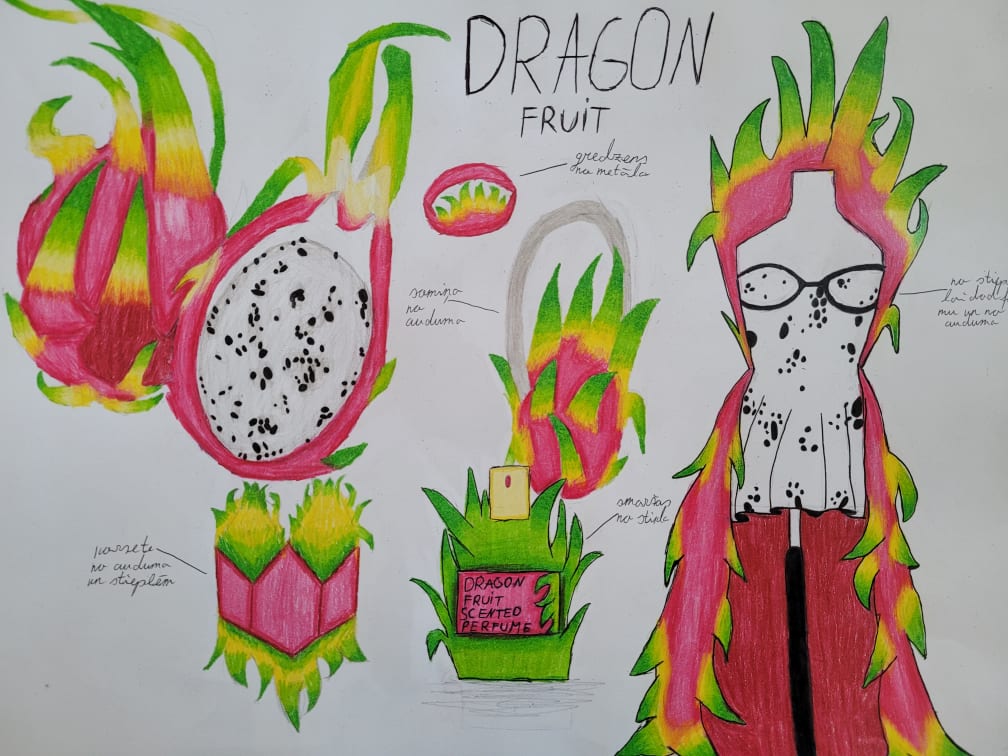 DRAGON
FRUIT
gredzens
no metāla
somiņa
no
auduma
no stiep
lai dod
mu un no
auduma
smaržas
no stikla
korsete
no auduma
un stieplēm
DRAGON
FRUIT
SCENTED
PERFUME